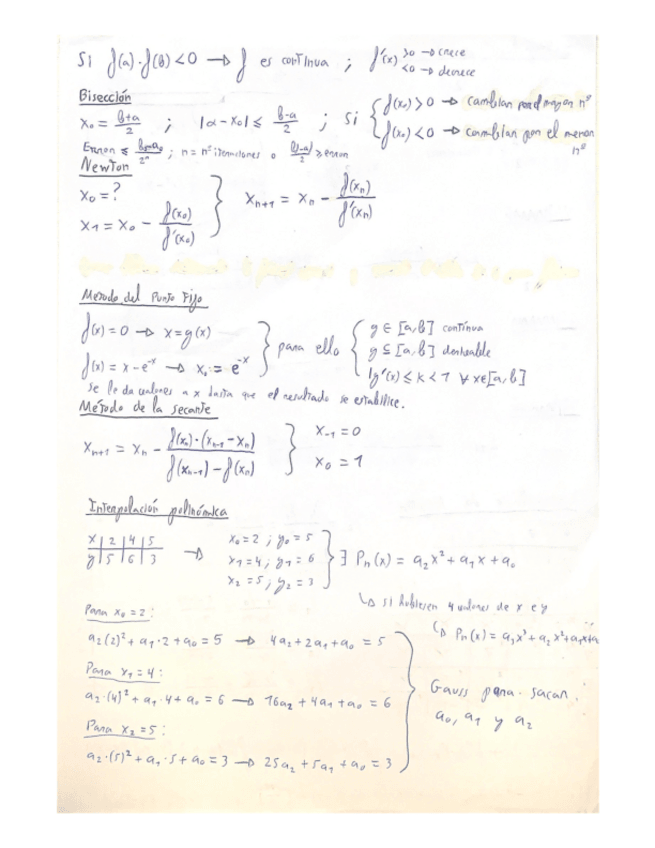 Si f(a)·f(b)<0 → f es continua ; f'(x) >0 → crece
<0 → decrece
Bisección
x₀ = (b+a)/2 ; |α-x₀| ≤ (b-a)/2 ; Si { f(x₀) > 0 → cambian por el mayor nº
f(x₀) < 0 → cambian por el menor nº
Error ≤ (b₀-a₀)/2ⁿ ; n = nº iteraciones o (b-a)/2 ≥ error
Newton
x₀ = ?
x₁ = x₀ - f(x₀)/f'(x₀) } xₙ₊₁ = xₙ - f(xₙ)/f'(xₙ)
Metodo del Punto Fijo
f(x) = 0 → x = g(x)
f(x) = x - e⁻ˣ → x₁ := e⁻ˣ } para ello { g ∈ [a,b] continua
g ⊆ [a,b] derivable
|g'(x) ≤ k < 1 ∀ x∈[a,b]
se le da valores a x hasta que el resultado se estabilice.
Método de la secante
xₙ₊₁ = xₙ - f(xₙ)·(xₙ₋₁-xₙ)/(f(xₙ₋₁)-f(xₙ)) } x₋₁ = 0
x₀ = 1
Interpolación polinómica
x | 2 | 4 | 5
y | 5 | 6 | 3
→ x₀ = 2 ; y₀ = 5
x₁ = 4 ; y₁ = 6
x₂ = 5 ; y₂ = 3 } ∃ Pₙ(x) = a₂x² + a₁x + a₀
↳ si hubiesen 4 valores de x e y
↳ Pₙ(x) = a₃x³ + a₂x² + a₁x + a
Para x₀ = 2 :
a₂(2)² + a₁·2 + a₀ = 5 → 4a₂ + 2a₁ + a₀ = 5
Para x₁ = 4 :
a₂·(4)² + a₁·4 + a₀ = 6 → 16a₂ + 4a₁ + a₀ = 6
Para x₂ = 5 :
a₂·(5)² + a₁·5 + a₀ = 3 → 25a₂ + 5a₁ + a₀ = 3
} Gauss para sacar
a₀, a₁ y a₂